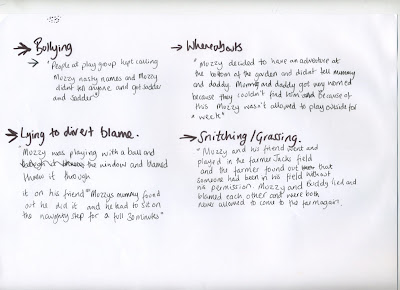 → Bullying
→ "People at play group kept calling
Mozzy nasty names and Mozzy
didn't tell anyone and got sadder
and sadder"
→ Whereabouts
"Mozzy decided to have an adventure at
the bottom of the garden and didn't tell mummy
and daddy. Mummy and daddy got very worried
because they couldn't find him and Because of
this Mozzy wasn't allowed to play outside for
a week"
→ Lying to divert blame.
Mozzy was playing with a ball and
the window and blamed
threw it through
it on his friend "Mozzys mummy found
out he did it and he had to sit on
the naughty step for a full 30 minutes"
→ Snitching/Grassing.
"Mozzy and his friend went and
played in the farmer Jacks field
and the farmer found out that
someone had been in his field without
his permission. Mozzy and Buddy lied and
blamed each other and were both
never allowed to come to the farm again.